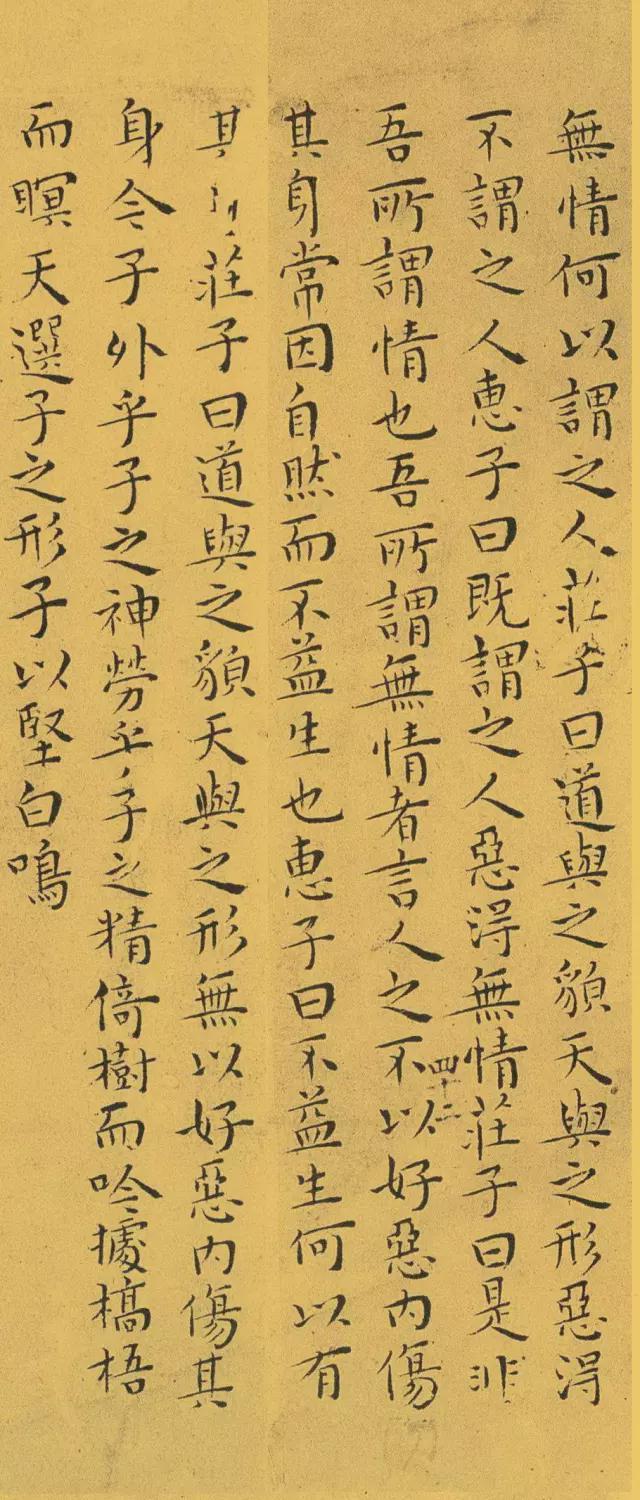 無情何以謂之人莊子曰道與之貌天與之形惡得
不謂之人惠子曰既謂之人惡得無情莊子曰是非
吾所謂情也吾所謂無情者言人之不以好惡內傷
其身常因自然而不益生也惠子曰不益生何以有
其莊子曰道與之貌天與之形無以好惡內傷其
身今子外乎子之神勞乎子之精倚樹而吟據槁梧
而瞑天選子之形子以堅白鳴
四十二